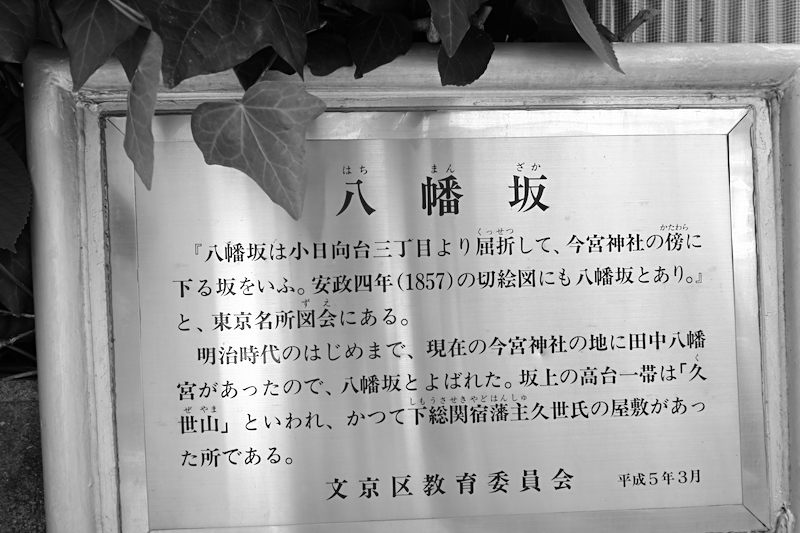 八幡坂
『八幡坂は小日向台三丁目より屈折して、今宮神社の傍に
下る坂をいふ。安政四年(1857)の切絵図にも八幡坂とあり。』
と、東京名所図会にある。
明治時代のはじめまで、現在の今宮神社の地に田中八幡
宮があったので、八幡坂とよばれた。坂上の高台一帯は「久
世山」といわれ、かつて下総関宿藩主久世氏の屋敷があっ
た所である。
文京区教育委員会 平成5年3月